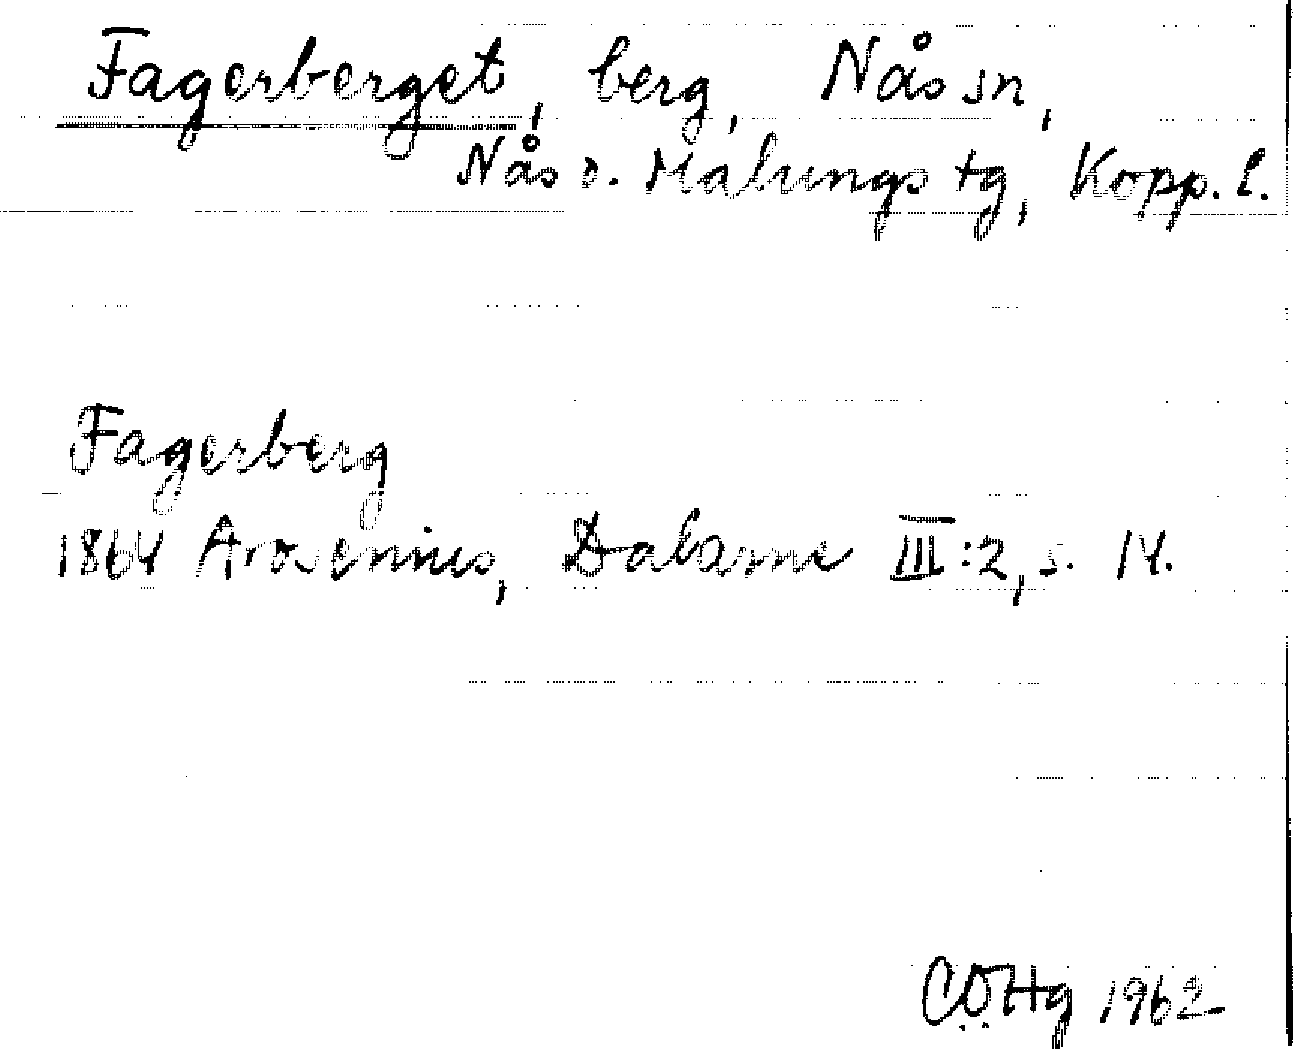 Fagerberget, berg, Nås sn,
Nås o. Malungs tg, Kopp. l.
Fagerberg
1864 Arosenius, Dalarne III:2, s. 14.
CÖHg 1962